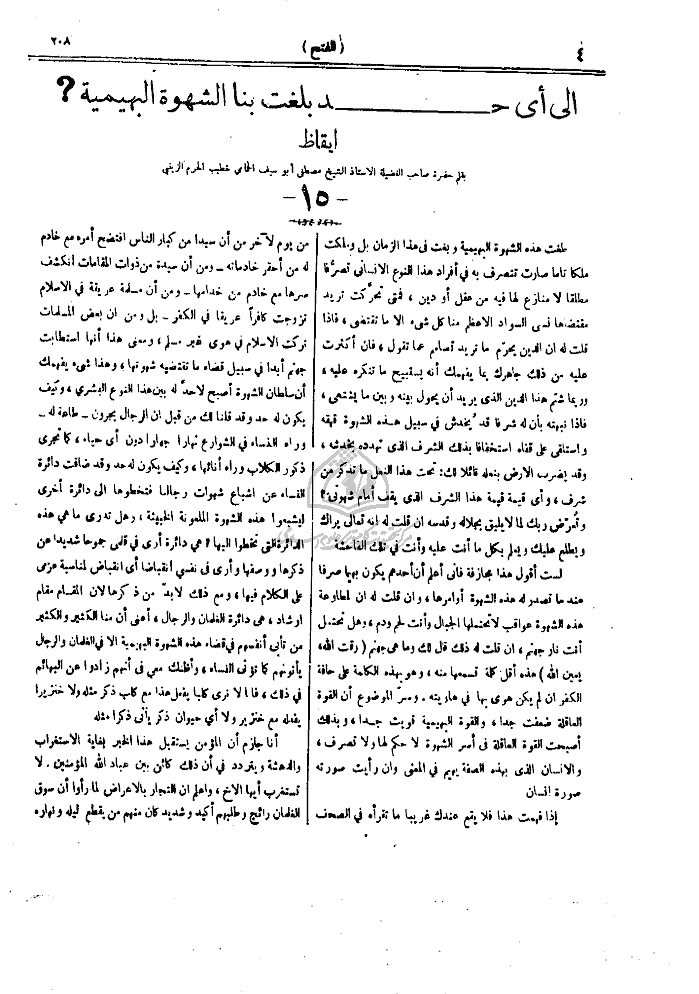 ٤
(الفتح)
٢٠٨
الى أى حـــــد بلغت بنا الشهوة البهيمية ؟
ايقاظ
بقلم حضرة صاحب الفضيلة الاستاذ الشيخ مصطفى أبو سيف الحمامي خطيب الحرم الزينبي
— ١٥ —
طغت هذه الشهوة البهيمية وبغت فى هذا الزمان بل وملكت
ملكا تاما صارت تتصرف به فى أفراد هذا النوع الانسانى تصرُّفا
مطلقا لا منازع لها فيه من عقل أو دين ، فمتى تحركت تريد
مقتضاها نسى السواد الاعظم منا كل شىء الا ما تقتضى ، فاذا
قلت له ان الدين يحرّم ما تريد تصامم عما تقول ، فان أكثرت
عليه من ذلك جاهرك بما يفهمك أنه يستقبح ما تنكره عليه ،
وربما شتم هذا الدين الذى يريد أن يحول بينه وبين ما يشتهى ،
فاذا نبهته بأن له شرفا قد يُخدش في سبيل هذه الشهوة قهقه
واستلقى على قفاه استخفافا بذلك الشرف الذى تهدده بخدشه ،
وقد يضرب الارض بنعله قائلا لك: تحت هذا النعل ما تذكر من
شرف ، وأى قيمة قيمة هذا الشرف الذى يقف أمام شهوتى؟
وتُعرّض ربك لما لا يليق بجلاله وقدسه ان قلت له انه تعالى يراك
ويطلع عليك ويعلم بكل ما أنت عليه وأنت فى تلك الفاحشة
لست أقول هذا مجازفة فانى أعلم أن أحدهم يكون بهيما صرفا
عند ما تصدر له هذه الشهوة أوامرها ، وان قلت له ان لمطاوعة
هذه الشهوة عواقب لا تحتملها الجبال وأنت لحم ودم ، وهل تحتمل
أنت نار جهنم ، ان قلت له ذلك قال لك وما هى جهنم ( رقت الله،
يمين الله ) هذه أقل كلمة تسمعها منه ، وهو بهذه الكلمة على حافة
الكفر ان لم يكن هوى بها فى هاويته . وسرّ الموضوع أن القوة
العاقلة ضعفت جدا ، والقوة البهيمية قويت جدا ، وبذلك
أصبحت القوة العاقلة فى أسر الشهوة لا حكم لها ولا تصرف ،
والانسان الذى بهذه الصفة بهيم فى المعنى وان رأيت صورته
صورة انسان
إذا فهمت هذا فلا يقع عندك غريبا ما تقرأه فى الصحف
من يوم لآخر من أن سيدا من كبار الناس افتضح أمره مع خادم
له من أحقر خادماته — ومن أن سيدة من ذوات المقامات انكشف
سرها مع خادم من خدامها — ومن أن مسلمة عريقة فى الاسلام
تزوجت كافراً عريقا فى الكفر — بل ومن ان بعض المسلمات
تركت الاسلام فى هوى غير مسلم ، ومعنى هذا أنها استطابت
جهنم أبدا فى سبيل قضاء ما تقتضيه شهوتها ، وهذا شىء يفهمك
أن سلطان الشهوة أصبح لا حدَّ له بين هذا النوع البشري ، وكيف
يكون له حد وقد قلنا لك من قبل ان الرجال يجرون — طاعة له —
وراء النساء فى الشوارع نهارا جهارا دون أى حياء ، كما تجرى
ذكور الكلاب وراء أناثها ، وكيف يكون له حد وقد ضاقت دائرة
النساء عن اشباع شهوات رجالنا فتخطوها الى دائرة أخرى
ليشبعوا هذه الشهوة الملعونة الخبيثة ، وهل تدرى ما هى هذه
الدائرة التى تخطوا اليها؟ هي دائرة أرى فى قلمى جموحا شديدا عن
ذكرها ووصفها وأرى فى نفسى انقباضا أى انقباض لمناسبة عزمى
على الكلام فيها ، ومع ذلك لابدّ من ذكرها لان المقام مقام
ارشاد ، هى دائرة الغلمان والرجال ، أعنى أن منا الكثير والكثير
من تأبى أنفسهم فى قضاء هذه الشهوة البهيمية الا فى الغلمان والرجال
يأتونهم كما تؤتى النساء ، وأظنك معى فى أنهم زادوا عن البهائم
فى ذلك ، فانا لا نرى كلبا يفعل هذا مع كلب ذكر مثله ولا خنزيرا
يفعله مع خنزير ولا أي حيوان ذكر يأتى ذكرا مثله
أنا جازم أن المؤمن يستقبل هذا الخبر بغاية الاستغراب
والدهشة ويتردد فى أن ذلك كائن بين عباد الله المؤمنين . لا
تستغرب أيها الاخ ، واعلم ان التجار بالاعراض لما رأوا أن سوق
الغلمان رائج وطلبهم أكيد وشديد كان منهم من يقطع ليله ونهاره